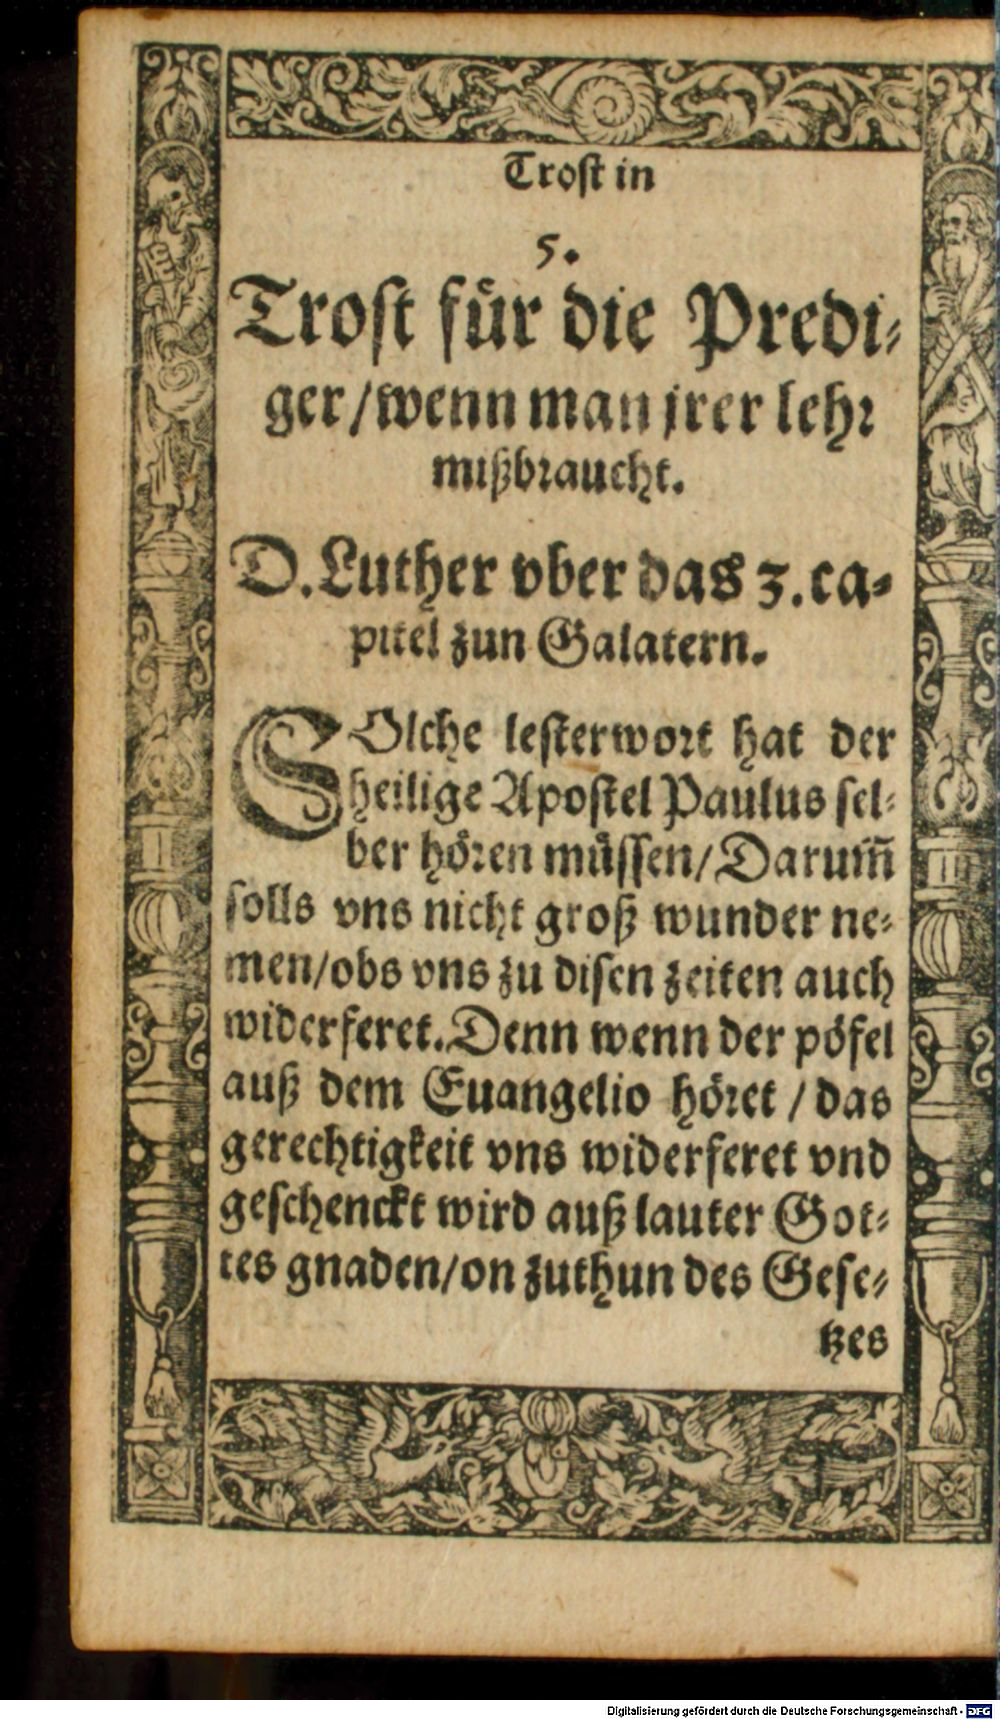 Trost in
5.
Trost für die Predi⸗
ger/wenn man jrer lehr
mißbraucht.
D. Luther vber das 3. ca⸗
pitel zun Galatern.
SOlche lesterwort hat der
heilige Apostel Paulus sel⸗
ber hören müssen/Darum̃
solls vns nicht groß wunder ne⸗
men/obs vns zu disen zeiten auch
widerferet. Denn wenn der pöfel
auß dem Euangelio höret / das
gerechtigkeit vns widerferet vnd
geschenckt wird auß lauter Got⸗
tes gnaden/on zuthun des Gese⸗
tzes
Digitalisierung gefördert durch die Deutsche Forschungsgemeinschaft - DFG